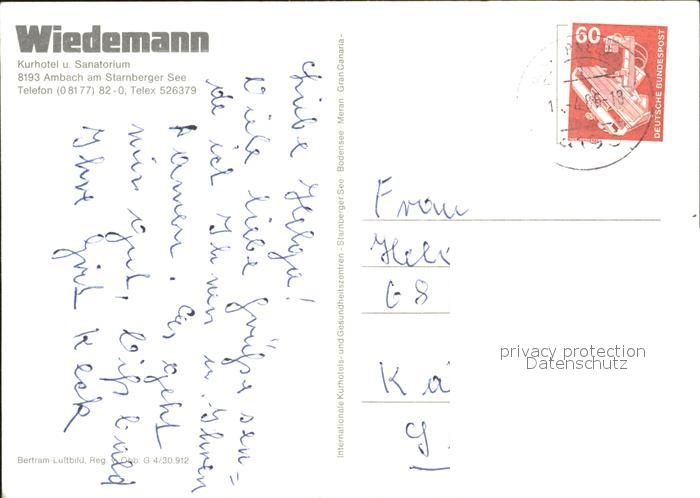 Wiedemann
Kurhotel u. Sanatorium
8193 Ambach am Starnberger See
Telefon (0 81 77) 82-0, Telex 526379
Liebe Helga!
Viele liebe Grüße sen=
de ich Ihnen u. Ihren
Damen. Es geht
mir gut, bis bald
Ihre
Bertram-Luftbild, Reg. v. Obb. G 4/30.912
Internationale Kurhotels- und Gesundheitszentren - Starnberger See Bodensee - Meran Gran Canaria -
60
DEUTSCHE BUNDESPOST
Frau
Hel
68
Kä
privacy protection
Datenschutz